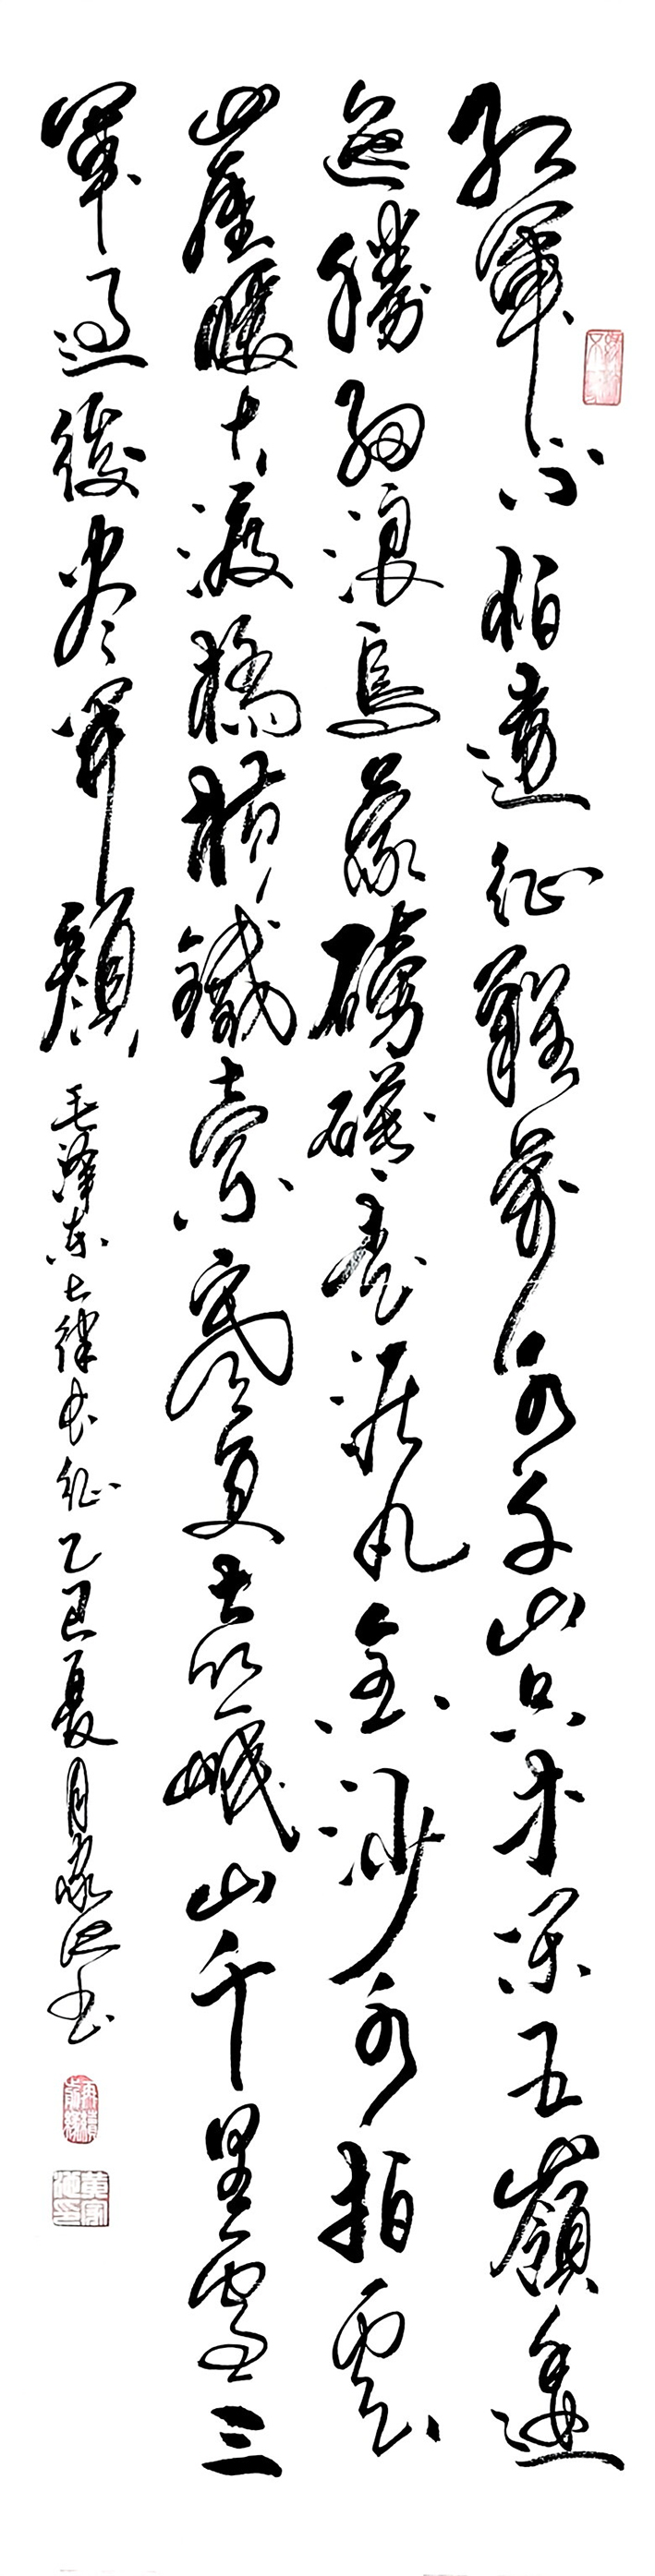 紅軍不怕遠征難萬水千山只等閑五嶺逶
迤騰細浪烏蒙磅礴走泥丸金沙水拍雲
崖暖大渡橋橫鐵索寒更喜岷山千里雪三
軍過後尽開顏 毛澤東七律長征乙巳夏月家书